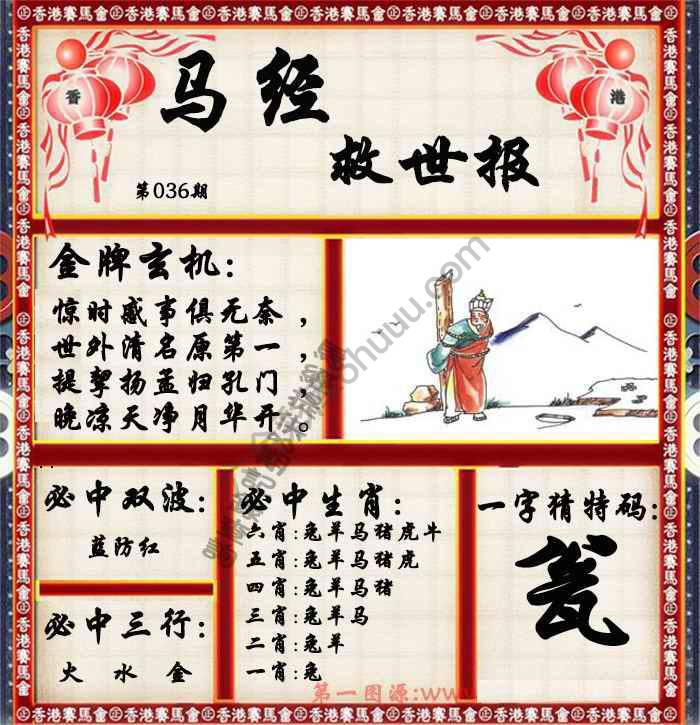 香港賽馬會
香 港
马经
救世报
第036期
金牌玄机:
惊时感事俱无奈，
世外清名原第一，
提挈扬孟归孔门，
晚凉天净月华开。
必中双波:
蓝防红
必中三行:
火 水 金
必中生肖:
六肖:兔羊马猪虎牛
五肖:兔羊马猪虎
四肖:兔羊马猪
三肖:兔羊马
二肖:兔羊
一肖:兔
一字猜特码:
瓮
第一图源:www